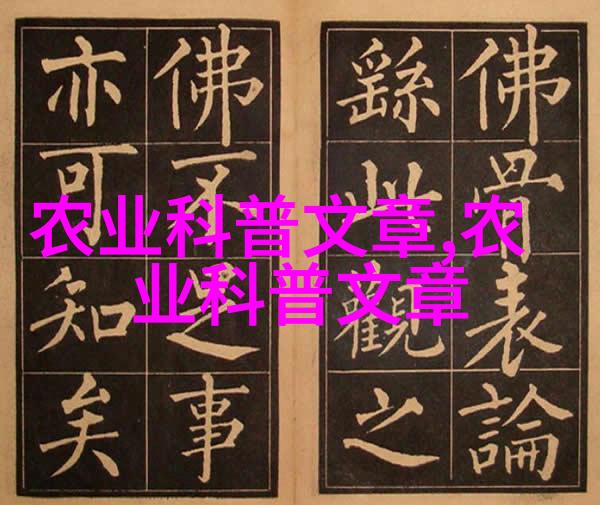 佛骨表論
繇此觀之
佛不足事
亦可知矣
农业科普文章,农
业科普文章